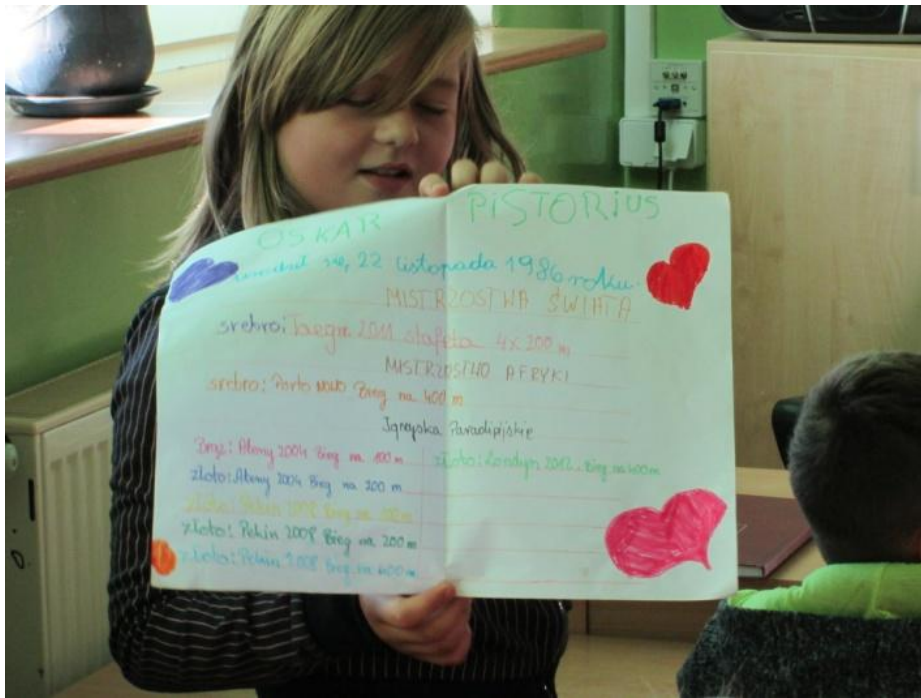 OSKAR PISTORIUS
się, 22 listopada 1986 roku.
MISTRZOSTWA ŚWIATA
srebro: Taegu 2011 stafeta 4x200 m
MISTRZOSTWO AFRYKI
srebro: Porto Novo Bieg na 400 m
Igrzyska Paradipijskie
Brąz: Ateny 2004 Bieg na 100 m
złoto: Londyn 2012. Bieg na 400 m
złoto: Ateny 2004 Bieg na 200 m
złoto: Pekin 2008 Bieg na 100 m
złoto: Pekin 2008 Bieg na 200 m
złoto: Pekin 2008 Bieg na 400 m